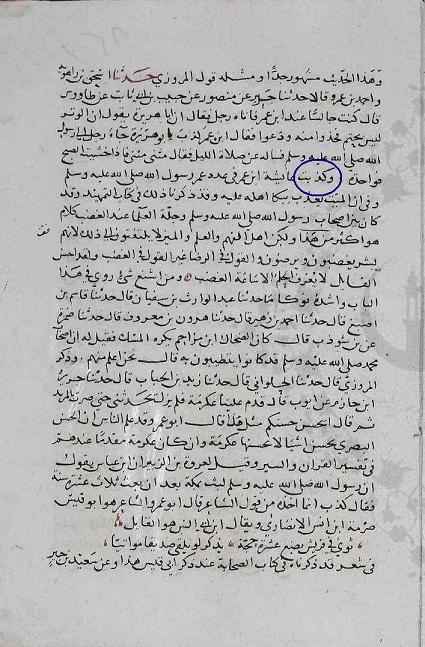 وهذا الحديث مشهور جدا ومثله قول المروزي حدثنا اسحق بن راهويه
واحمد بن عمرو قالا حدثنا جرير عن منصور عن حبيب بن ابي ثابت عن طاووس
قال كنت جالسا عند ابن عمر فاتاه رجل فقال ان ابا هريرة يقول ان الوتر
ليس بحتم فخذوا منه ودعوا فقال ابن عمر كذب ابو هريرة جاء رجل الى رسول
الله صلى الله عليه وسلم فساله عن صلاة الليل فقال مثنى مثنى فاذا خشيت الصبح
فواحدة وكذبت عائشة ابن عمر في عدد عمر رسول الله صلى الله عليه وسلم
وفي ان الميت يعذب ببكا اهله عليه وقد ذكرنا ذلك في كتاب التمهيد وقد
كان بين اصحاب رسول الله صلى الله عليه وسلم وجلة العلما عند الغضب كلام
هو اكثر من هذا ولكن اهل الفهم والعلم والميز لا يلتفتون الى ذلك لانهم
بشر يغضبون ويرضون والقول في الرضا غير القول في الغضب ولقد احسن
القايل لا يعرف الحلم الا ساعة الغضب ومن اشنع شي روي في هذا
الباب واشده نوكا ما حدثنا عبد الوارث بن سفيان قال حدثنا قاسم بن
اصبغ قال حدثنا احمد بن زهير قال حدثنا هرون بن معروف قال حدثنا ضمرة
عن بن شوذب قال كان الضحاك بن مزاحم يكره المسك فقيل له ان اصحاب
محمد صلى الله عليه وسلم قد كانوا يتطيبون به قال نحن اعلم منهم وذكر
المروزي قال حدثنا الحلواني قال حدثنا زيد بن الحباب قال حدثنا جرير
ابن حازم عن ايوب قال قدم علينا عكرمة فلم يزل يحدثنا حتى صرنا بالمربد
ثم قال ايحسن حسنكم مثل هذا قال ابو عمر وقد علم الناس ان الحسن
البصري يحسن اشيا لا يحسنها عكرمة وان كان عكرمة مقدما عندهم
في تفسير القران والسير وقيل لعروة بن الزبير ان ابن عباس يقول
ان رسول الله صلى الله عليه وسلم لبث بمكة بعد ان بعث ثلاث عشرة سنة
فقال كذب انما اخذه من قول الشاعر قال ابو عمر والشاعر هو ابو قيس
صرمة بن انس الانصاري ويقال ابن ابي انس هو القايل
ثوى في قريش بضع عشرة حجة يذكر لو يلقى صديقا مواتيا
في شعر قد ذكرناه في كتاب الصحابة عند ذكر ابي قيس هذا وعن سعيد بن جبير